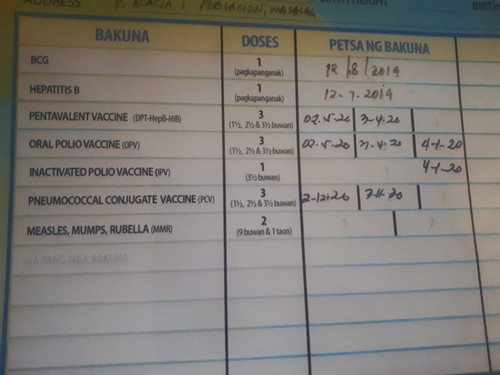 ADDRESS P. ACACIA 1 POBLACION, MALALAG
BIRTH
BAKUNA DOSES PETSA NG BAKUNA
BCG 1 (pagkapanganak) 12/8/2019
HEPATITIS B 1 (pagkapanganak) 12-7-2019
PENTAVALENT VACCINE (DPT-HepB-HiB) 3 (1½, 2½ & 3½ buwan) 02.5.20 3-4.20 3
ORAL POLIO VACCINE (OPV) 3 (1½, 2½ & 3½ buwan) 02.5.20 3-4.20 4-1-20
INACTIVATED POLIO VACCINE (IPV) 1 (3½ buwan) 1 4-1-20
PNEUMOCOCCAL CONJUGATE VACCINE (PCV) 3 (1½, 2½ & 3½ buwan) 2-12-20 3-11-20 3
MEASLES, MUMPS, RUBELLA (MMR) 2 (9 buwan & 1 taon) 1 2
IBA PANG MGA BAKUNA